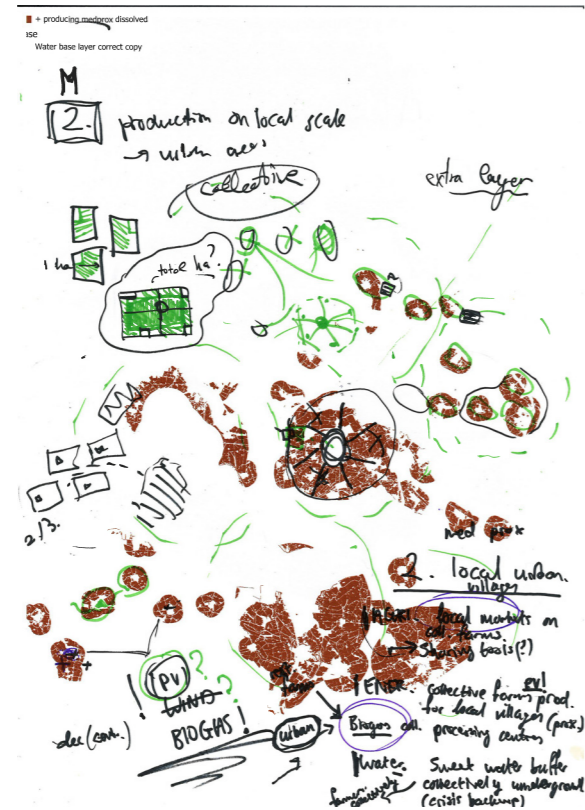 + producing medprox dissolved
ase
Water base layer correct copy
M
2. production on local scale
→ urban areas
collective
extra layer
1 ha
total ha?
2/3.
med prox
2. local urban
villages
local markets on
coll. farms.
→ Sharing tools(?)
PV ?
WIND ?
BIOGAS !
urban
ENER. collective farms prod.
for local villages (prox.)
ev!
Biogas coll.
processing centres
Water. Sweet water buffer
collectively underground
(crisis backup)